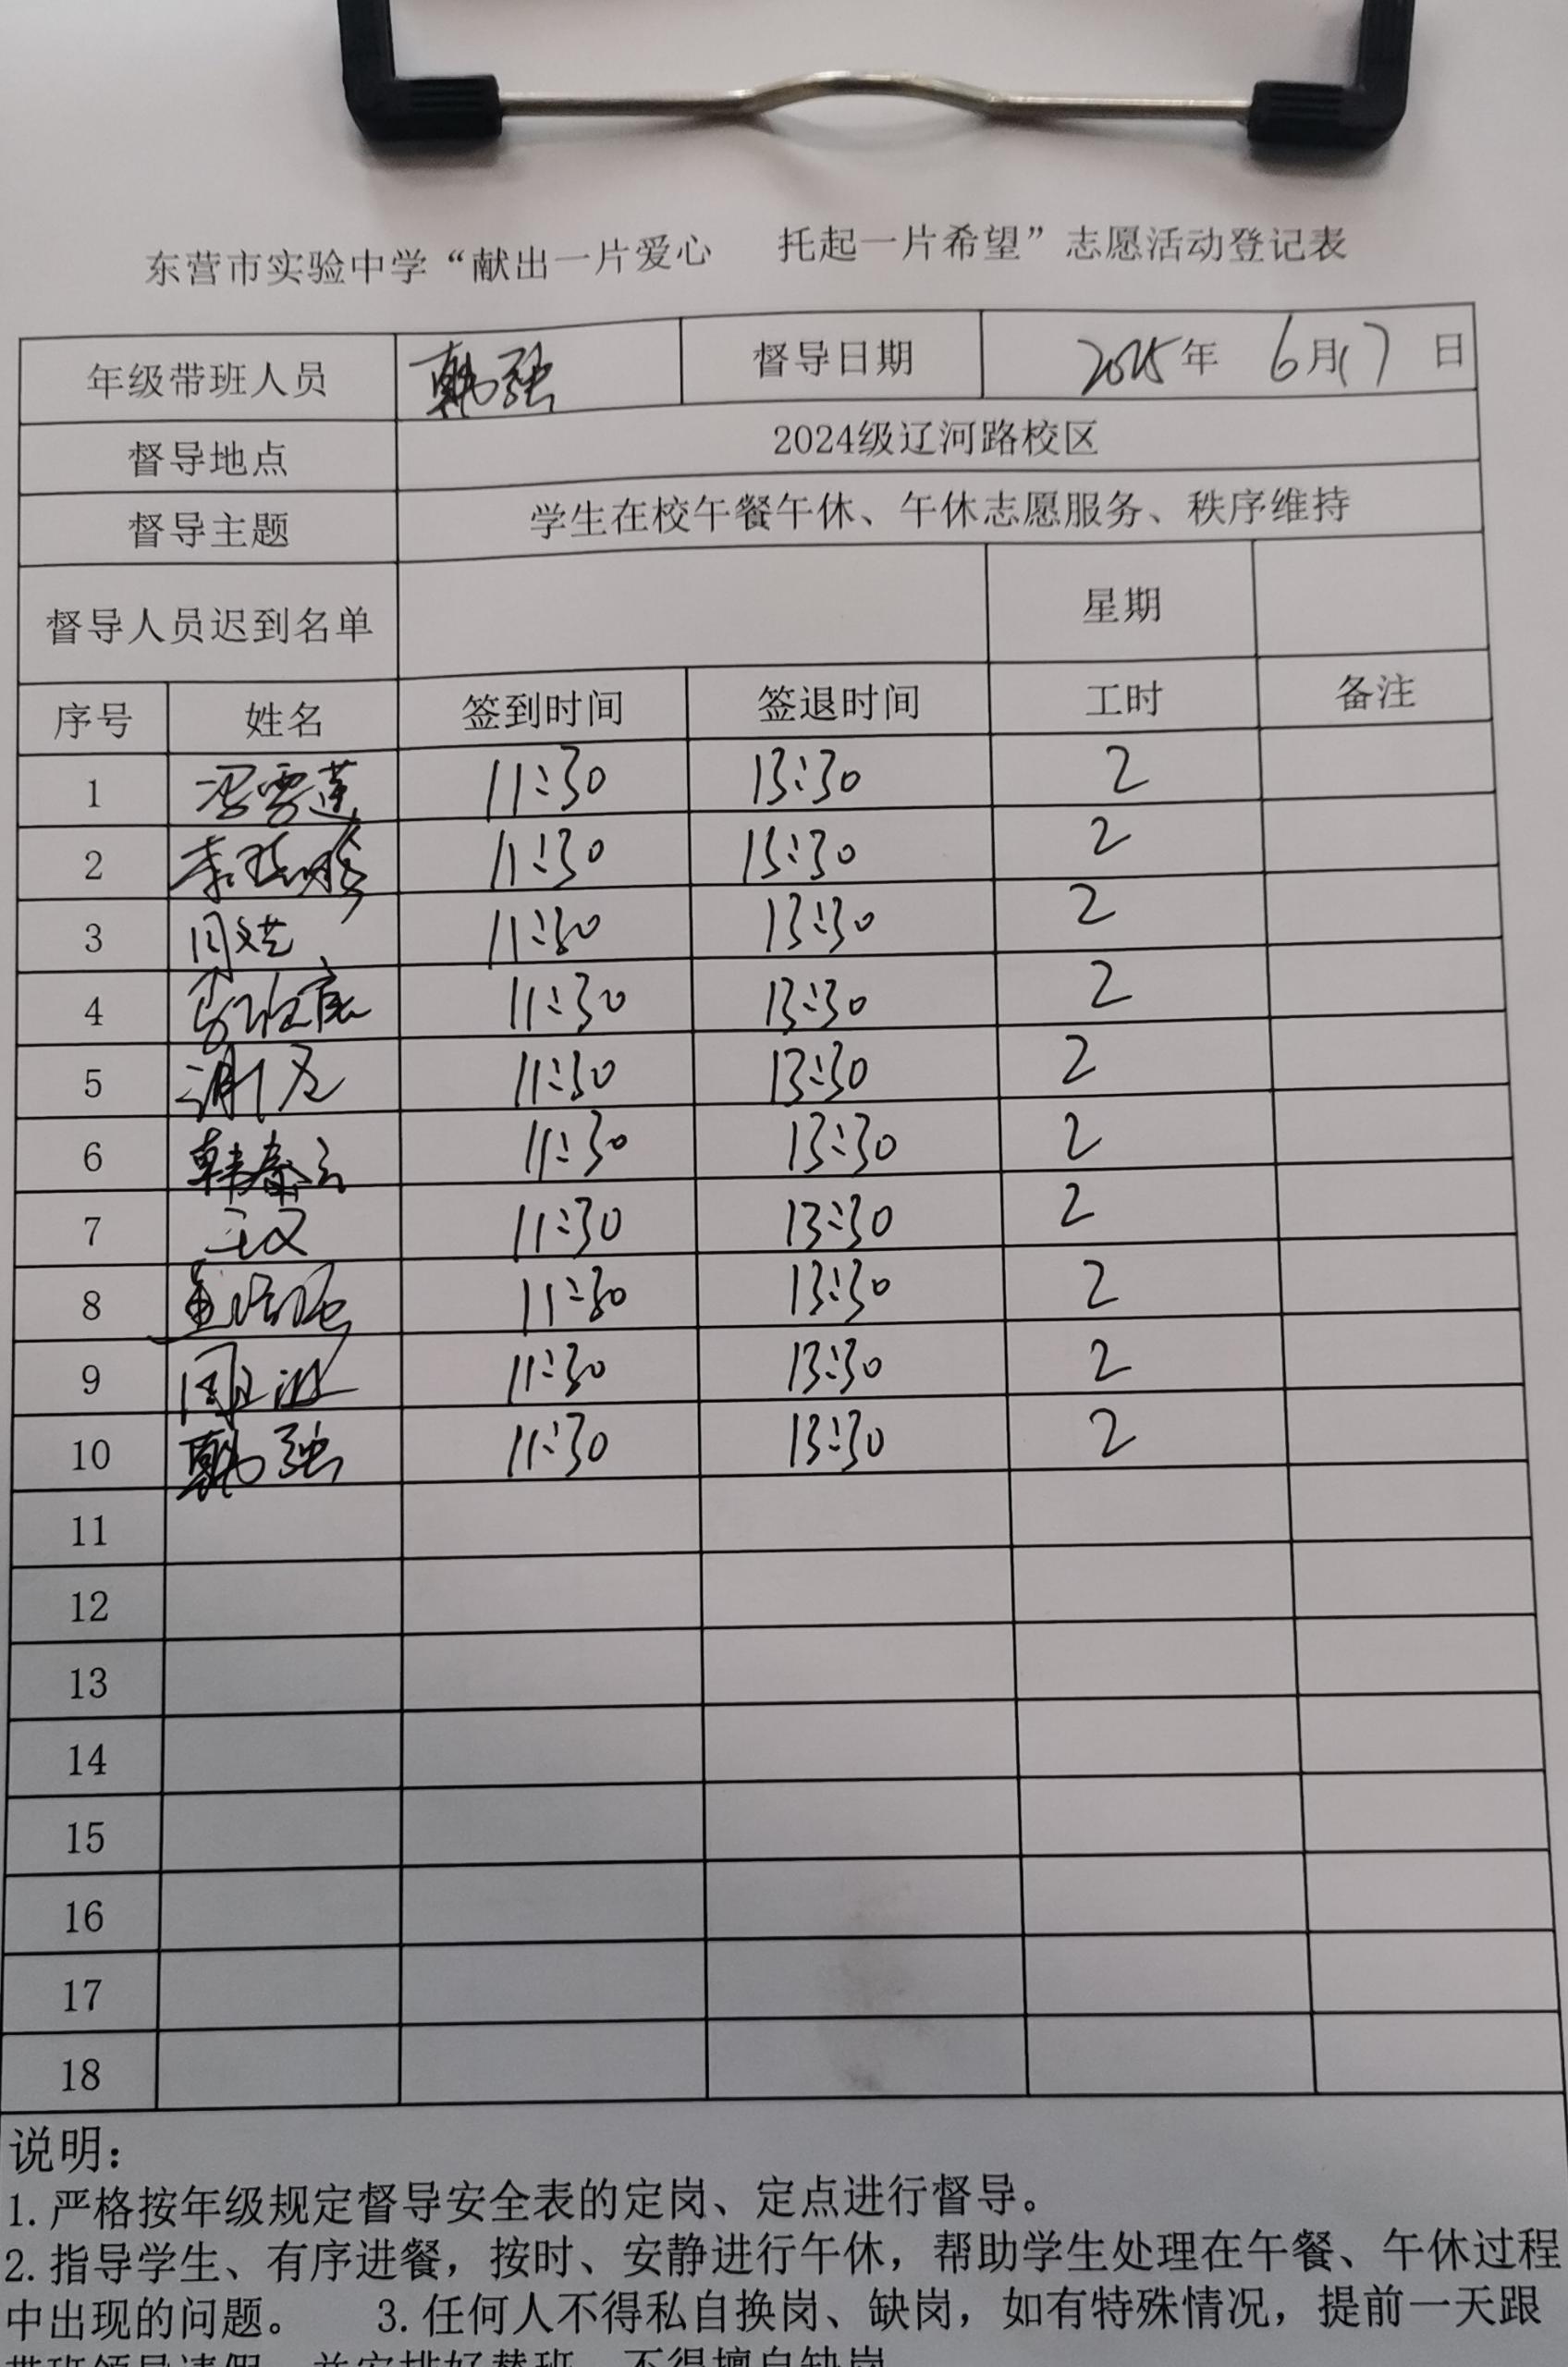 东营市实验中学“献出一片爱心 托起一片希望”志愿活动登记表
年级带班人员 韩强 督导日期 2025年 6月17日
督导地点 2024级辽河路校区
督导主题 学生在校午餐午休、午休志愿服务、秩序维持
督导人员迟到名单 星期
序号 姓名 签到时间 签退时间 工时 备注
1 冯雪莲 11:30 13:30 2
2 11:30 13:30 2
3 11:30 13:30 2
4 11:30 13:30 2
5 11:30 13:30 2
6 韩秦云 11:30 13:30 2
7 11:30 13:30 2
8 11:30 13:30 2
9 11:30 13:30 2
10 韩强 11:30 13:30 2
11
12
13
14
15
16
17
18
说明：
1.严格按年级规定督导安全表的定岗、定点进行督导。
2.指导学生、有序进餐，按时、安静进行午休，帮助学生处理在午餐、午休过程
中出现的问题。 3.任何人不得私自换岗、缺岗，如有特殊情况，提前一天跟
带班领导请假，并安排好替班，不得擅自缺岗